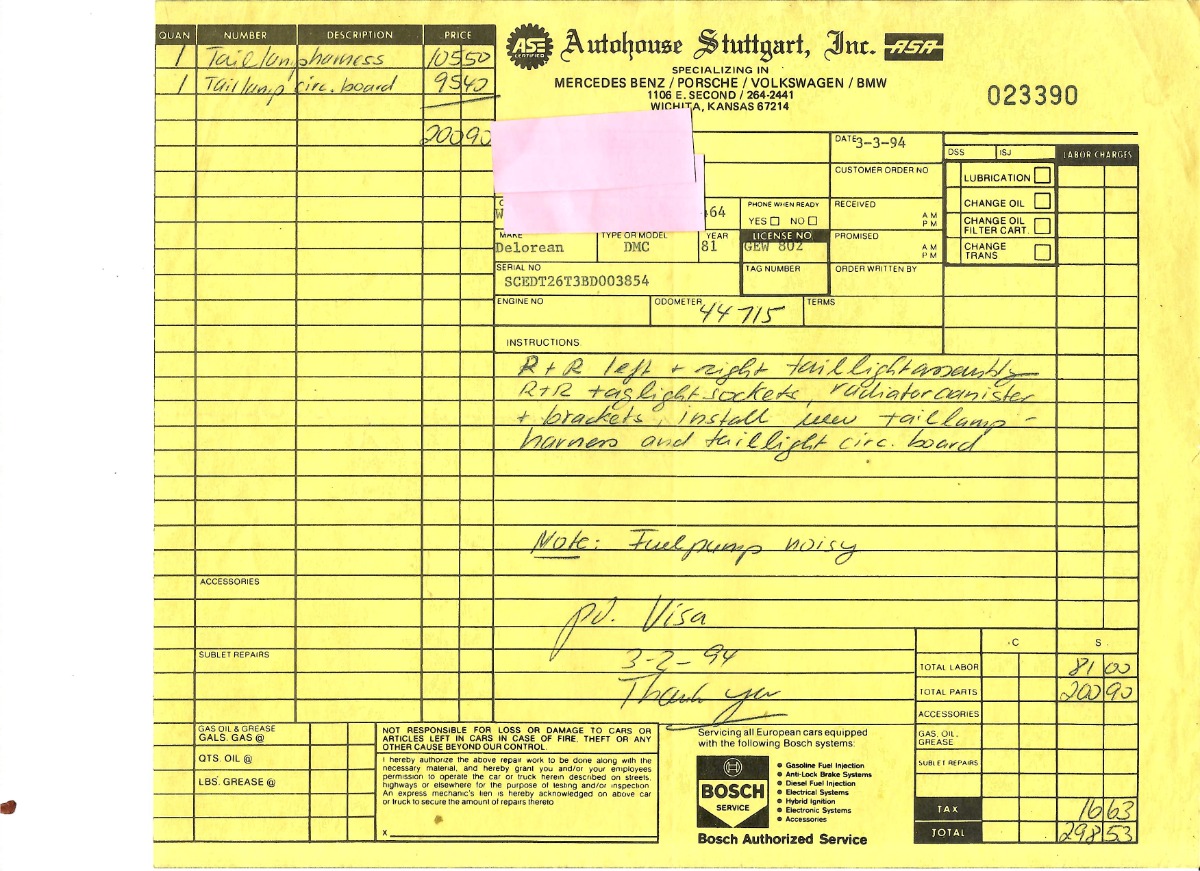 QUAN NUMBER DESCRIPTION PRICE
1 Taillampharness 105 50
1 Taillamp circ. board 95 40
200 90
ASE CERTIFIED
Autohouse Stuttgart, Inc. ASA
SPECIALIZING IN
MERCEDES BENZ / PORSCHE / VOLKSWAGEN / BMW
1106 E. SECOND / 264-2441
WICHITA, KANSAS 67214
023390
DATE 3-3-94
CUSTOMER ORDER NO
W 64
PHONE WHEN READY
YES NO
RECEIVED AM PM
MAKE Delorean
TYPE OR MODEL DMC
YEAR 81
LICENSE NO. GEW 802
PROMISED AM PM
SERIAL NO
SCEDT26T3BD003854
TAG NUMBER
ORDER WRITTEN BY
ENGINE NO
ODOMETER 44715
TERMS
DSS ISJ LABOR CHARGES
LUBRICATION
CHANGE OIL
CHANGE OIL
FILTER CART.
CHANGE
TRANS
INSTRUCTIONS
R+R left + right taillightassembly
R+R taglightsockets, radiatorcanister
+ brackets, install new taillamp-
harness and taillight circ. board
Note: Fuelpump noisy
pd. Visa
3-2-94
Thank you
ACCESSORIES
SUBLET REPAIRS
GAS OIL & GREASE
GALS. GAS @
QTS. OIL @
LBS. GREASE @
NOT RESPONSIBLE FOR LOSS OR DAMAGE TO CARS OR
ARTICLES LEFT IN CARS IN CASE OF FIRE, THEFT OR ANY
OTHER CAUSE BEYOND OUR CONTROL.
I hereby authorize the above repair work to be done along with the
necessary material, and hereby grant you and/or your employees
permission to operate the car or truck herein described on streets,
highways or elsewhere for the purpose of testing and/or inspection
An express mechanic's lien is hereby acknowledged on above car
or truck to secure the amount of repairs thereto
x
Servicing all European cars equipped
with the following Bosch systems:
BOSCH
SERVICE
Gasoline Fuel Injection
Anti-Lock Brake Systems
Diesel Fuel Injection
Electrical Systems
Hybrid Ignition
Electronic Systems
Accessories
Bosch Authorized Service
C S
TOTAL LABOR 81 00
TOTAL PARTS 200 90
ACCESSORIES
GAS, OIL,
GREASE
SUBLET REPAIRS
TAX 16 63
TOTAL 298 53